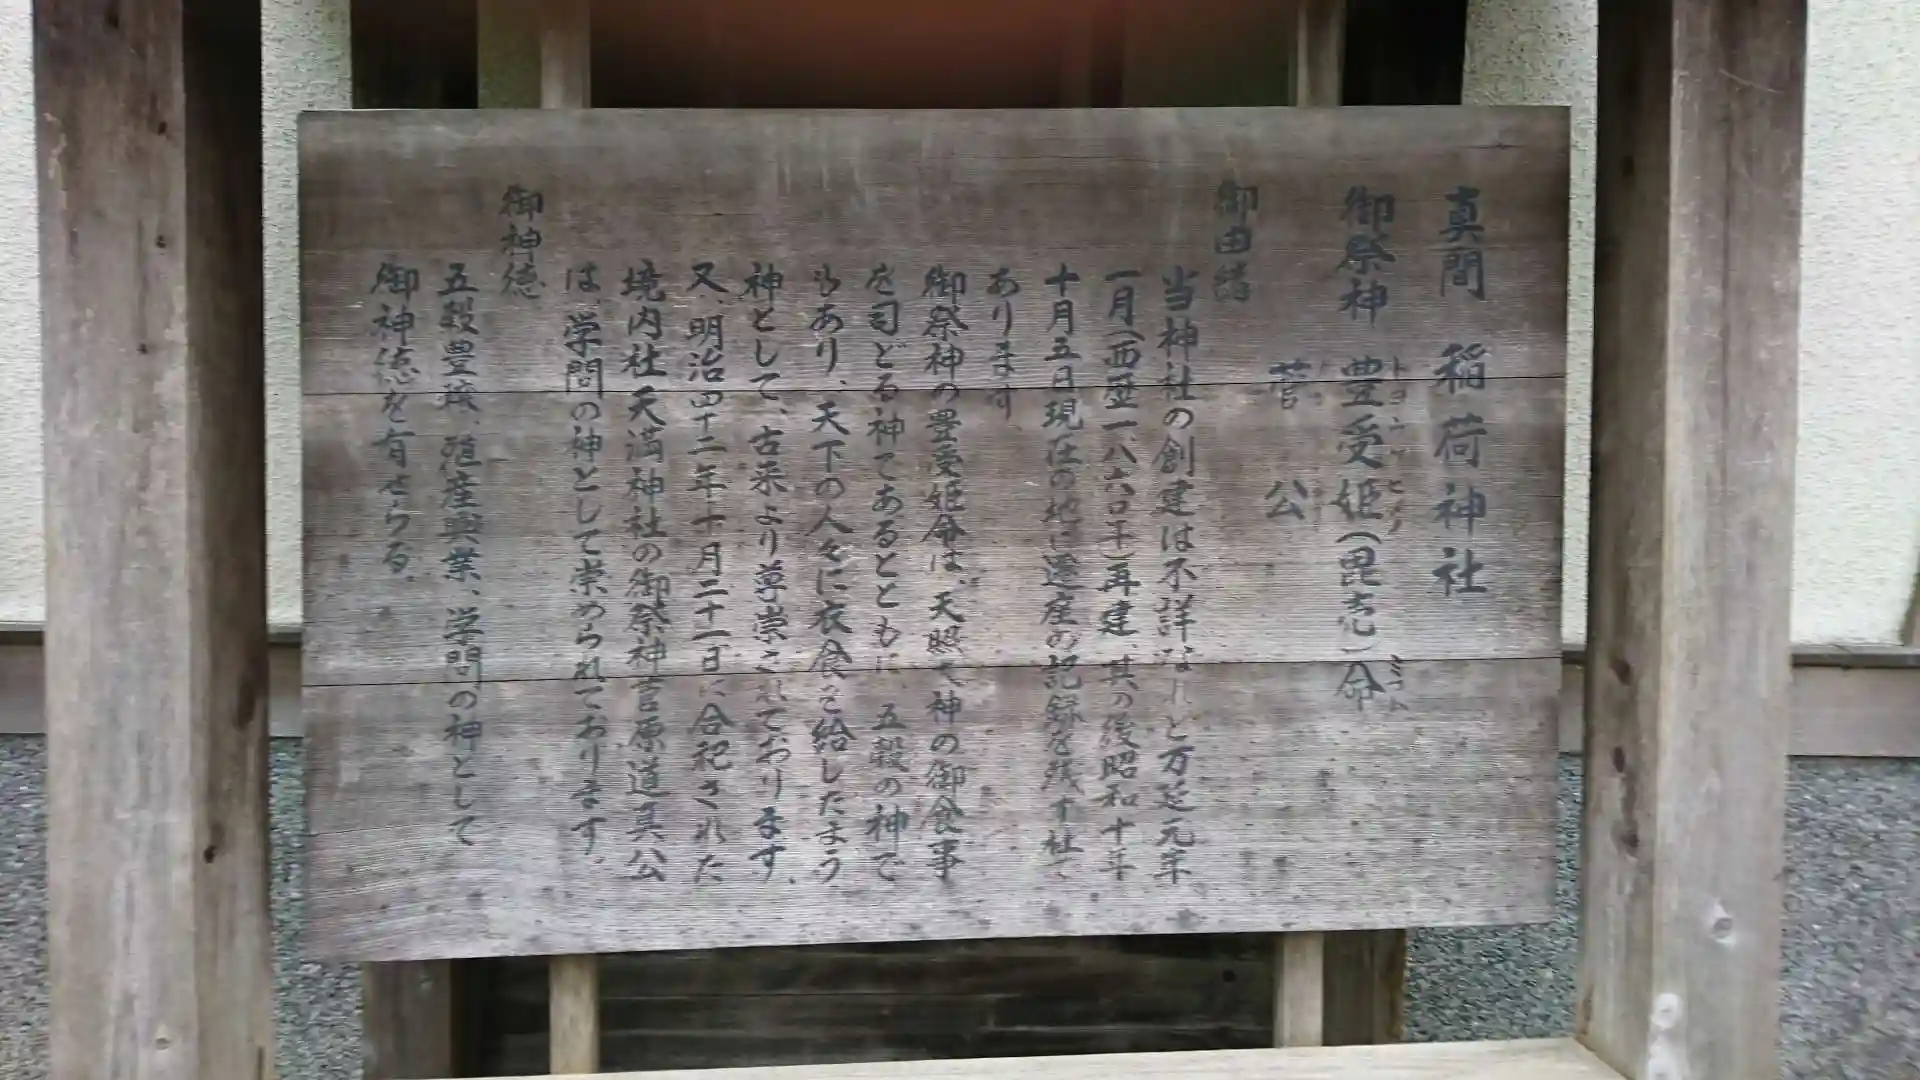 真間 稲荷神社
御祭神 豊受姫(毘売)命
トヨウケヒメノ ミコト
菅公
御由緒
当神社の創建は不詳なれど万延元年
一月(西歴一八六〇年)再建、其の後昭和十年
十月五日現在の地に遷座の記録を残す社で
あります
御祭神の豊受姫命は、天照大神の御食事
を司どる神であるとともに、五穀の神で
もあり、天下の人々に衣食を給したまう
神として、古来より尊崇されております。
又、明治四十二年十月二十一日に合祀された
境内社天満神社の御祭神菅原道真公
は、学問の神として崇められております。
御神徳
五穀豊穣、殖産興業、学問の神として
御神徳を有せらる。